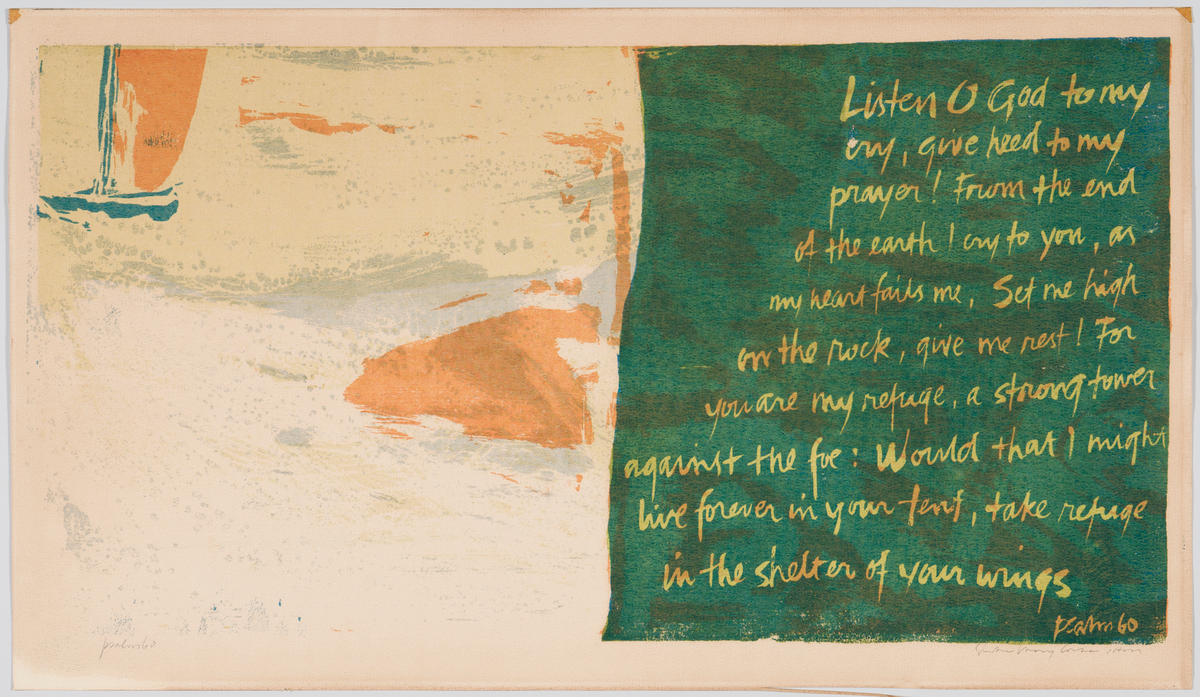 Listen O God to my
cry, give heed to my
prayer! From the end
of the earth I cry to you, as
my heart fails me, Set me high
on the rock, give me rest! For
you are my refuge, a strong tower
against the foe: Would that I might
live forever in your tent, take refuge
in the shelter of your wings
psalm 60
psalm 60
Sister Mary